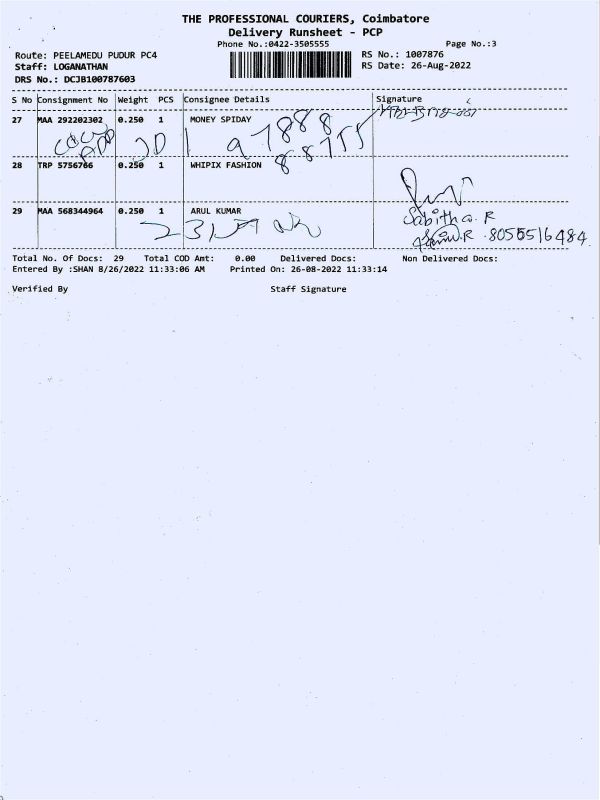 THE PROFESSIONAL COURIERS, Coimbatore
Delivery Runsheet - PCP
Phone No.:0422-3505555 Page No.:3
Route: PEELAMEDU PUDUR PC4 RS No.: 1007876
Staff: LOGANATHAN RS Date: 26-Aug-2022
DRS No.: DCJB100787603
S No Consignment No Weight PCS Consignee Details Signature
27 MAA 292202302 0.250 1 MONEY SPIDAY
28 TRP 5756766 0.250 1 WHIPIX FASHION
29 MAA 568344964 0.250 1 ARUL KUMAR
Sabitha. R
8055516484.
Total No. Of Docs: 29 Total COD Amt: 0.00 Delivered Docs: Non Delivered Docs:
Entered By :SHAN 8/26/2022 11:33:06 AM Printed On: 26-08-2022 11:33:14
Verified By Staff Signature